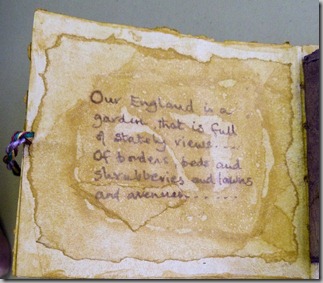 Our England is a
garden that is full
of stately views....
Of borders, beds and
shrubberies and lawns
and avenues......